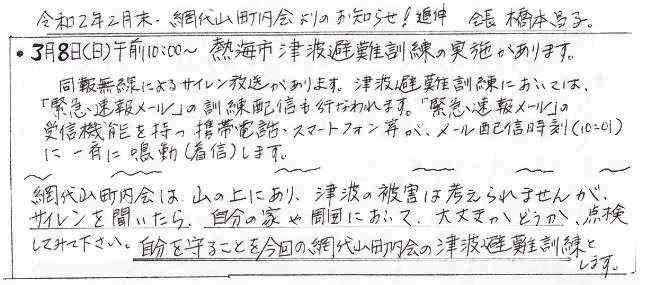 令和2年2月末・網代山町内会よりのお知らせ！追伸 会長 橋本昌子。
・3月8日(日)午前10:00～ 熱海市津波避難訓練の実施があります。
同報無線によるサイレン放送があります。津波避難訓練においては、
「緊急速報メール」の訓練配信も行なわれます。「緊急速報メール」の
受信機能を持つ携帯電話・スマートフォン等が、メール配信時刻(10:01)
に一斉に鳴動(着信)します。
網代山町内会は、山の上にあり、津波の被害は考えられませんが、
サイレンを聞いたら、自分の家や周囲において、大丈夫かどうか、点検
してみて下さい。自分を守ることを今回の網代山町内会の津波避難訓練と
します。